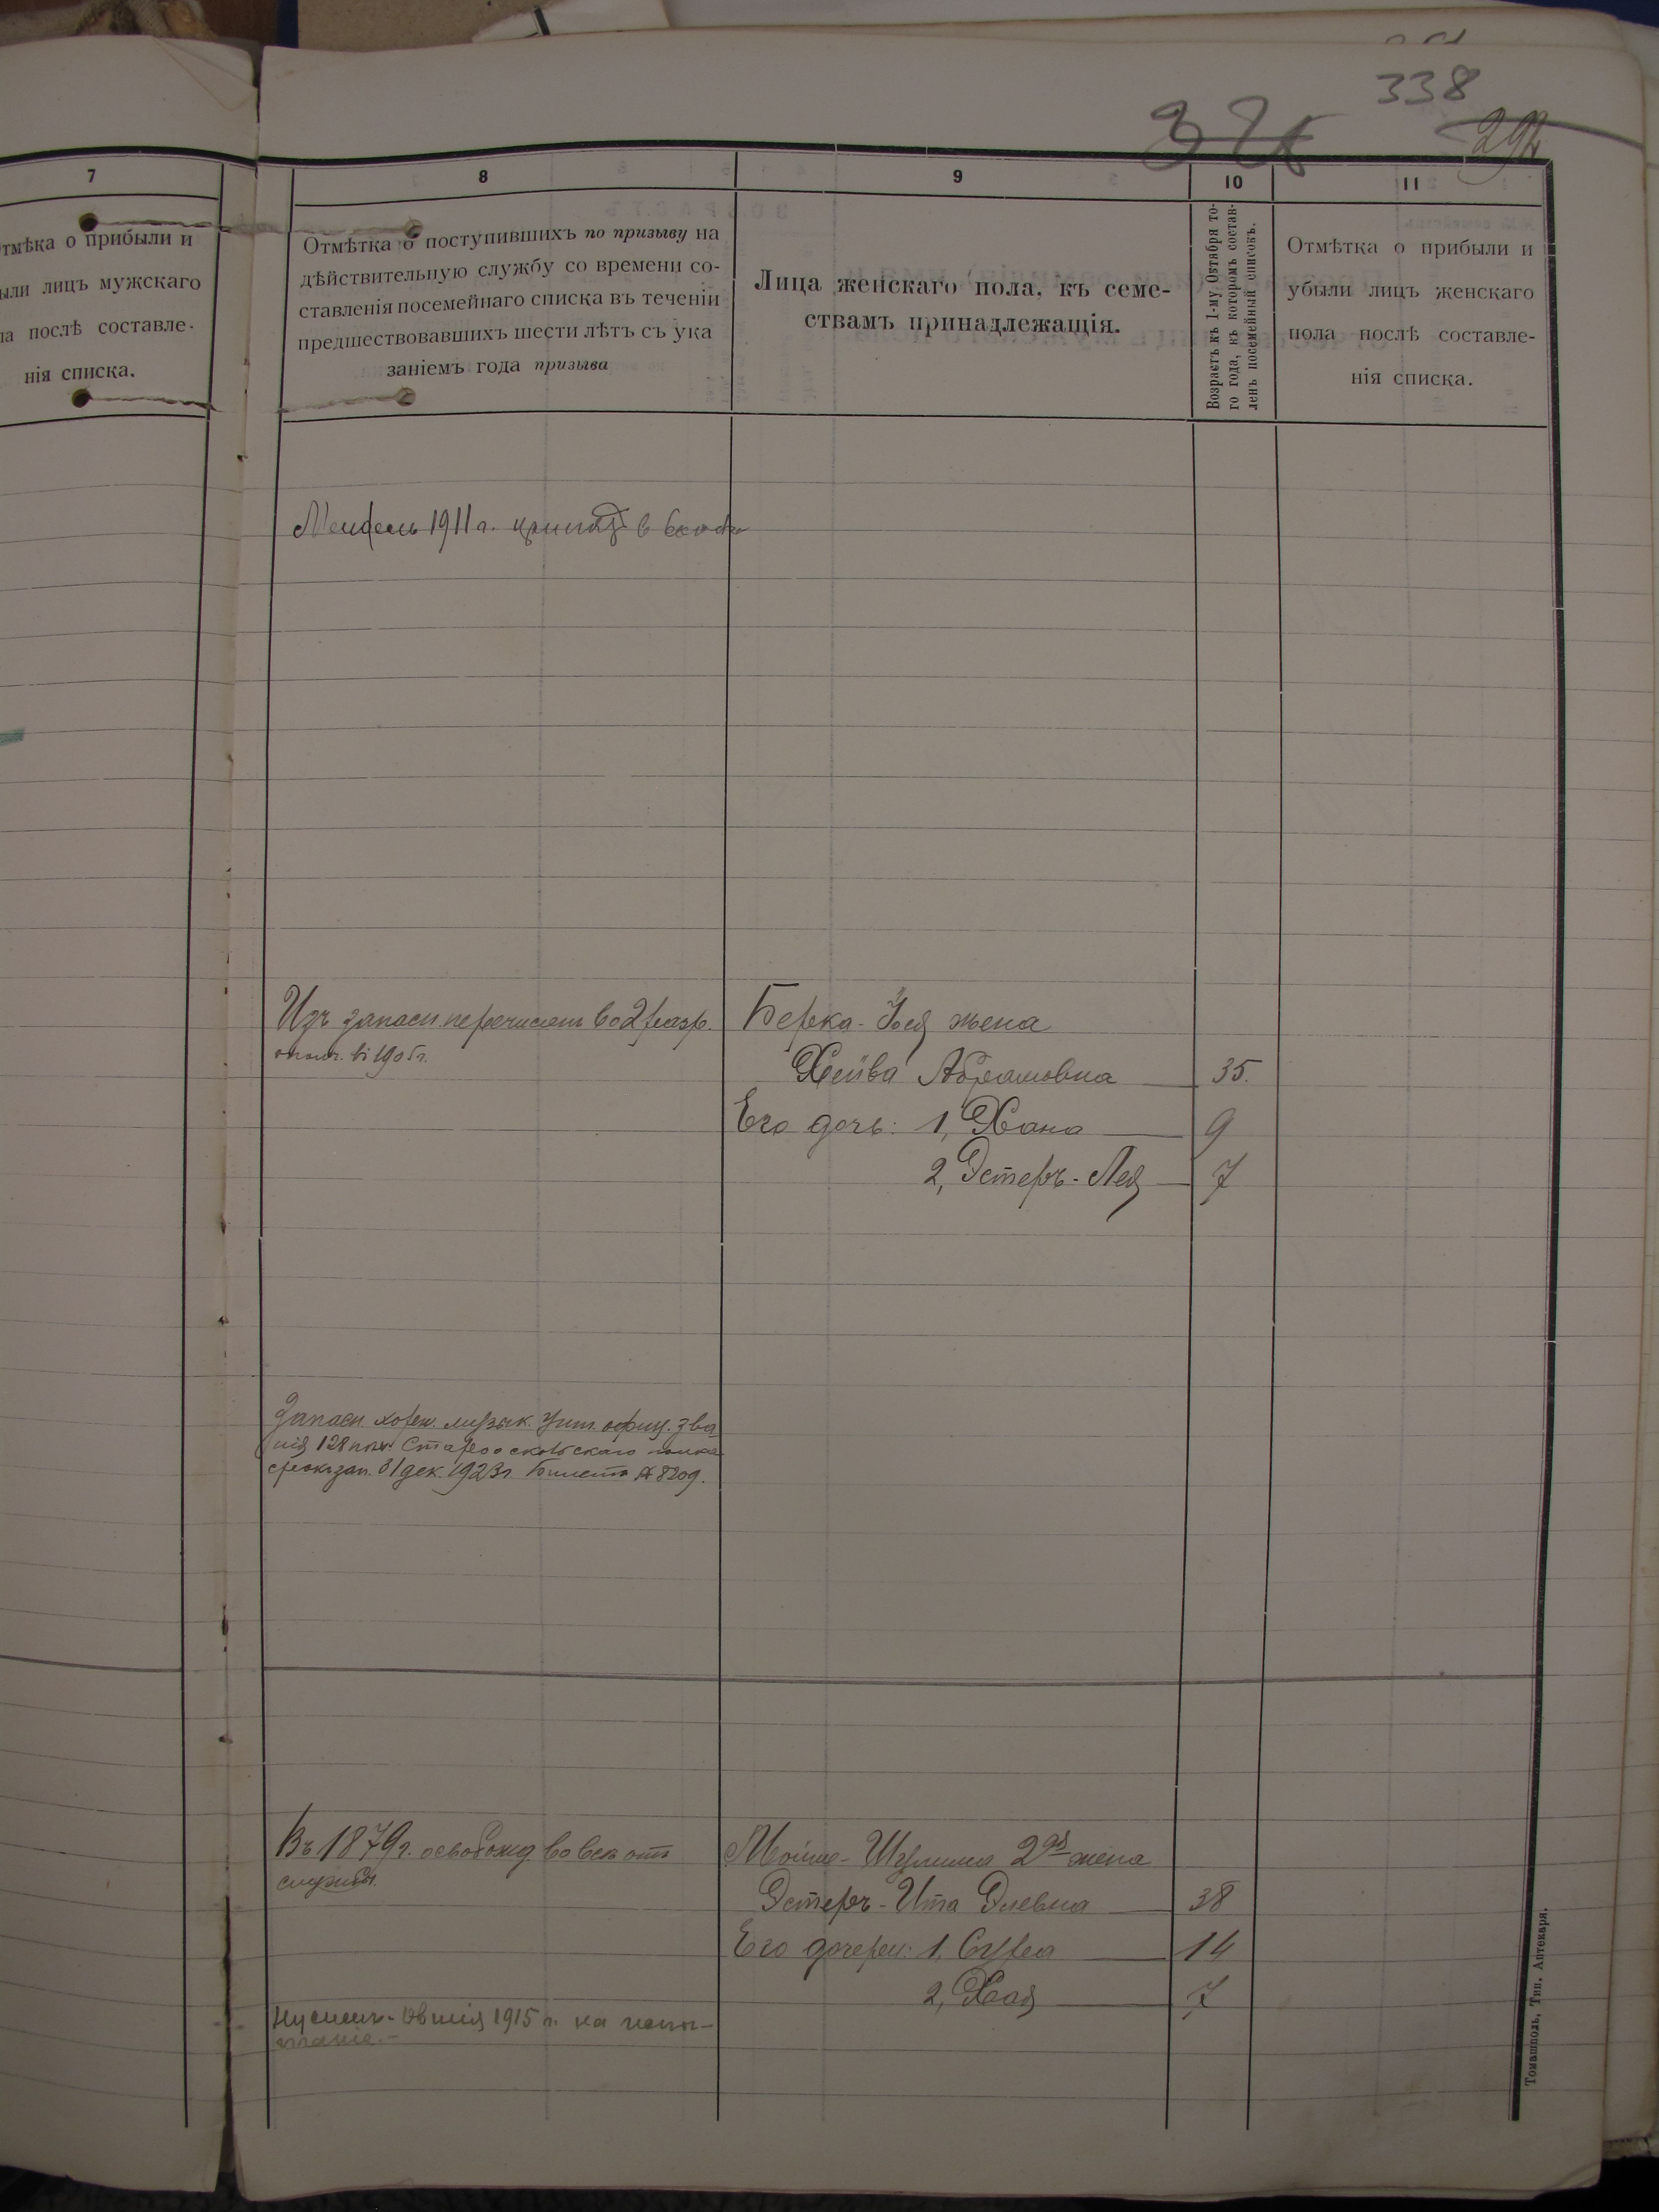 338
292
7
8
9
10
11
тмѣка о прибыли и
ыли лицъ мужскаго
ла послѣ составле-
нія списка.
Отмѣтка о поступившихъ по призыву на
дѣйствительную службу со времени со-
ставленія посемейнаго списка въ теченіи
предшествовавшихъ шести лѣтъ съ ука
заніемъ года призыва
Лица женскаго пола, къ семе-
ствамъ принадлежащія.
Возрастъ къ 1-му Октября то-
го года, въ которомъ состав-
ленъ посемейный списокъ.
Отмѣтка о прибыли и
убыли лицъ женскаго
пола послѣ составле-
нія списка.
1911 г. принятъ в
Изъ запасн. перечисленъ во 2 разр.
ополч. въ 1905 г.
Берка- жена
Хейва Абрамовна 35.
Его дочь: 1, Хана 9
2, Эстеръ-Лея 7
Запасн. музык. унт. офиц. зва
нія 128 пѣх. Старооскольскаго полка
срокъ зап. 31 дек. 1923 г. Билетъ № 8209.
Въ 1879 г. освобожд. во вся отъ
службы.
Мойше-Шулима 2ая жена
Эстеръ-Ита Элевна 38
Его дочери: 1, Сура 14
2, Хая 7
1915 г. на испы-
таніе.-
Томашполь, Тип. Аптекаря.